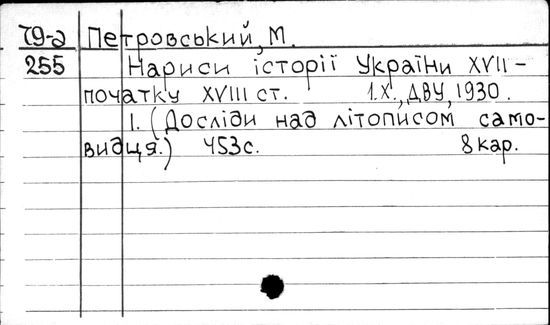 79-а Петровський, М.
255 Нариси історії України XVII-
початку XVIII ст. 1.Х., ДВУ, 1930.
1. (Досліди над літописом само-
видця.) 453с. 8 кар.